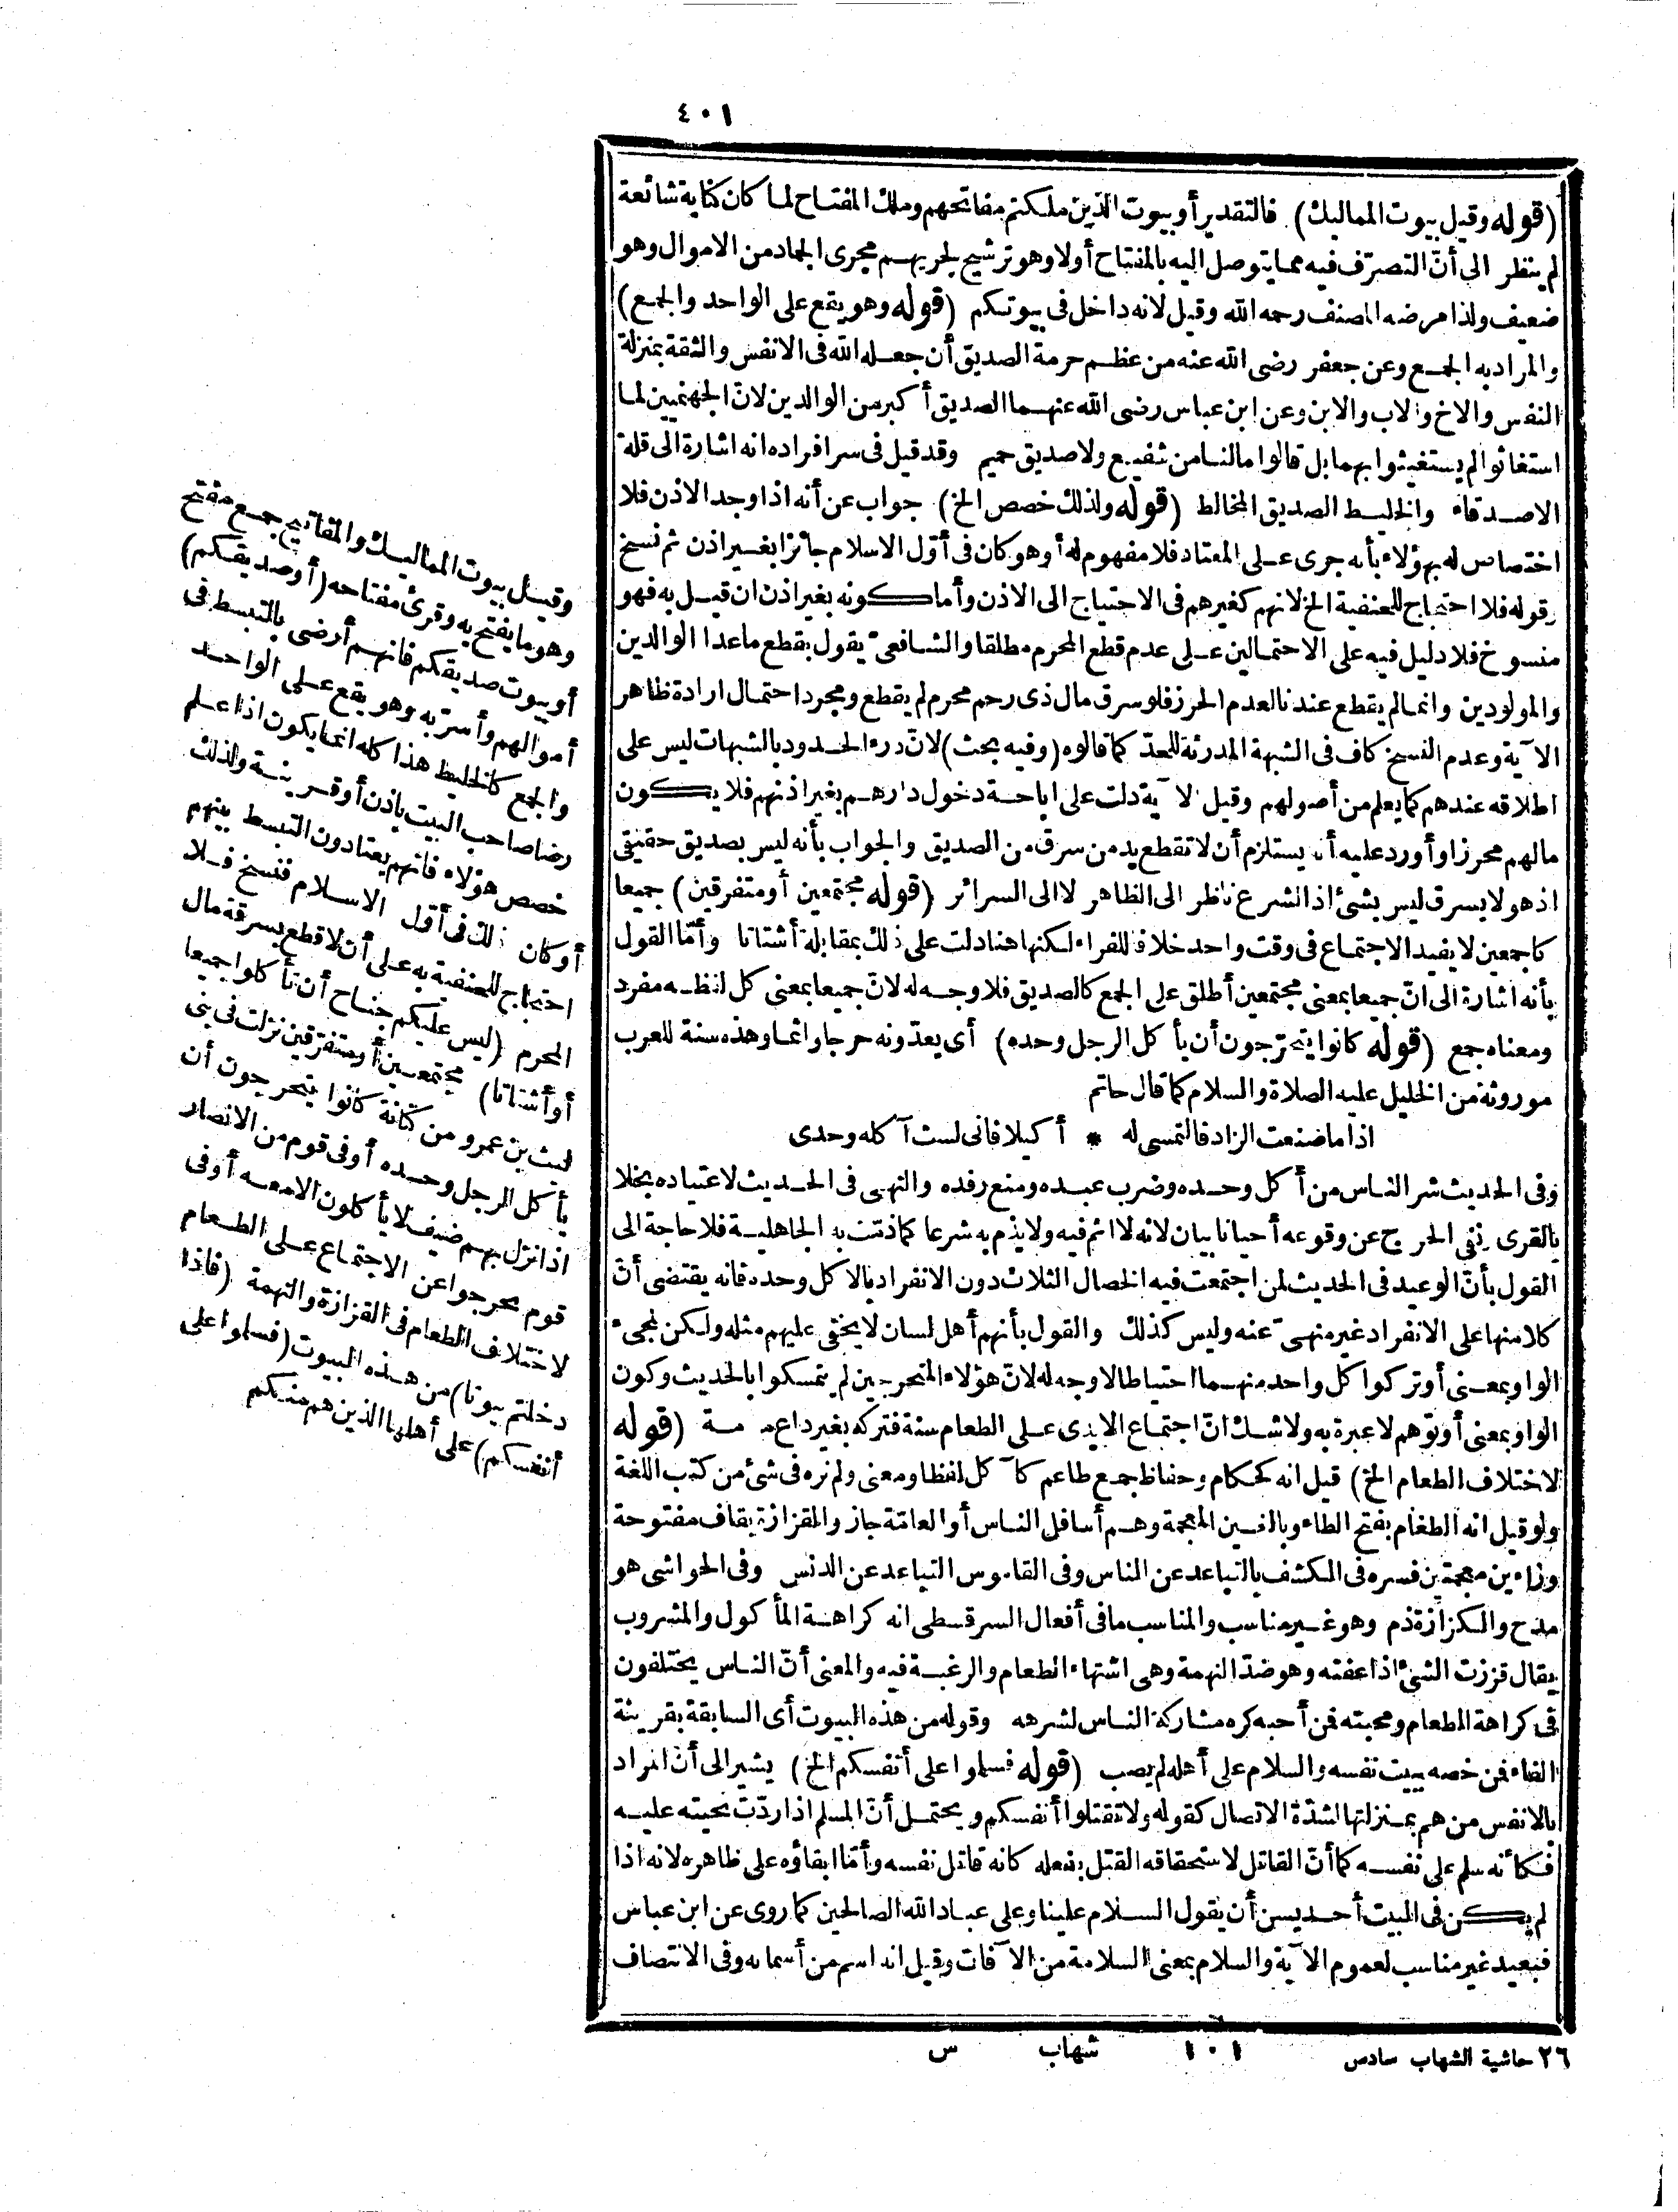 ٤٠١
(قوله وقيل بيوت المماليك) فالتقدير أو بيوت الذين ملكتم مفاتحهم وملك المفتاح لما كان كناية شائعة
لم ينظر الى أنّ التصرّف فيه مما يتوصل اليه بالمفتاح أولا وهو ترشيح لجريهم مجرى الجماد من الاموال وهو
ضعيف ولذا مرضه المصنف رحمه الله وقيل لانه داخل في بيوتكم (قوله وهو يقع على الواحد والجمع)
والمراد به الجمع وعن جعفر رضى الله عنه من عظم حرمة الصديق أن جعله الله فى الانفس والثقة بمنزلة
النفس والاخ والاب والابن وعن ابن عباس رضى الله عنهما الصديق أكبر من الوالدين لانّ الجهنميين لما
استغاثوا لم يستغيثوا بهما بل قالوا ما لنا من شفيع ولا صديق حميم وقد قيل فى سرافراده انه اشارة الى قلة
الاصدقاء والخليط الصديق المخالط (قوله ولذلك خصص الخ) جواب عن أنه اذا وجد الاذن فلا
اختصاص له بهؤلاء بأنه جرى على المعتاد فلا مفهوم له أو هو كان فى أوّل الاسلام جائزا بغير اذن ثم نسخ
قوله فلا احتجاج للحنفية الخ لانهم كغيرهم فى الاحتياج الى الاذن وأما كونه بغير اذن ان قيل به فهو
منسوخ فلا دليل فيه على الاحتمالين على عدم قطع المحرم مطلقا والشافعىّ يقول بقطع ماعدا الوالدين
والمولودين وانما لم يقطع عندنا لعدم الحرز فلو سرق مال ذى رحم محرم لم يقطع ومجرد احتمال ارادة ظاهر
الآية وعدم النسخ كاف فى الشبهة المدرئة للحدّ كما قالوه (وفيه بحث) لانّ درء الحدود بالشبهات ليس على
اطلاقه عندهم كما يعلم من أصولهم وقيل الآية دلت على اباحة دخول دارهم بغير اذنهم فلا يكون
مالهم محرزا وأورد عليه أنه يستلزم أن لا تقطع يد من سرق من الصديق والجواب بأنه ليس بصديق حقيقى
اذ هو لا يسرق ليس بشئ اذ الشرع ناظر الى الظاهر لا الى السرائر (قوله مجتمعين أو متفرقين) جميعا
كاجمعين لا يفيد الاجتماع فى وقت واحد خلافا للفراء لكنها هنا دلت على ذلك بمقابلة أشتاتا وأمّا القول
بأنه اشارة الى انّ جميعا بمعنى مجتمعين أطلق على الجمع كالصديق فلا وجه له لانّ جميعا بمعنى كل لفظه مفرد
ومعناه جمع (قوله كانوا يتحرّجون أن يأكل الرجل وحده) أى يعدّونه حرجا واثما وهذه سنة للعرب
موروثة من الخليل عليه الصلاة والسلام كما قال حاتم
اذا ما صنعت الزاد فالتمسى له * أكيلا فانى لست آكله وحدى
وفى الحديث شر الناس من أكل وحده وضرب عبده ومنع رفده والنهى فى الحديث لاعتياده بخلا
بالقرى ونفى الحرج عن وقوعه أحيانا بيان لانه لا اثم فيه ولا يذم به شرعا كما ذمّت به الجاهلية فلا حاجة الى
القول بأنّ الوعيد فى الحديث لمن اجتمعت فيه الخصال الثلاث دون الانفراد بالاكل وحده فانه يقتضى أنّ
كلا منها على الانفراد غير منهىّ عنه وليس كذلك والقول بأنهم أهل لسان لا يخفى عليهم مثله ولكن لمجىء
الواو بمعنى أو تركوا كل واحد منهما احتياطا لا وجه له لانّ هؤلاء المتحرجين لم يتمسكوا بالحديث وكون
الواو بمعنى أو توهم لا عبرة به ولا شك انّ اجتماع الايدى على الطعام سنة فتركه بغير داع مذمة (قوله
لاختلاف الطعام الخ) قيل انه كحكام وحفاظ جمع طاعم كآكل لفظا ومعنى ولم نره فى شئ من كتب اللغة
ولو قيل انه الطغام بفتح الطاء وبالغين المعجمة وهم أسافل الناس أو العامّة جاز والقزازة بقاف مفتوحة
وزاءين معجمتين فسره فى الكشف بالتباعد عن الناس وفى القاموس التباعد عن الدنس وفى الحواشى هو
مدح والكزازة ذم وهو غير مناسب والمناسب ما فى أفعال السرقسطى انه كراهة المأكول والمشروب
يقال قززت الشئ اذا عفته وهو ضدّ النهمة وهى اشتهاء الطعام والرغبة فيه والمعنى أنّ الناس يختلفون
فى كراهة الطعام ومحبته فمن أحبه كره مشاركة الناس لشرهه وقوله من هذه البيوت أى السابقة بقرينة
الفاء فمن خصه ببيت نفسه والسلام على أهله لم يصب (قوله فسلموا على أنفسكم الخ) يشير الى أنّ المراد
بالانفس من هم بمنزلتها لشدّة الاتصال كقوله ولا تقتلوا أنفسكم ويحتمل أنّ المسلم اذا ردّت تحيته عليه
فكأنه سلم على نفسه كما أنّ القاتل لاستحقاقه القتل بفعله كانه قاتل نفسه وأمّا ابقاؤه على ظاهره لانه اذا
لم يكن فى البيت أحد يسن أن يقول السلام علينا وعلى عباد الله الصالحين كما روى عن ابن عباس
فبعيد غير مناسب لعموم الآية والسلام بمعنى السلامة من الآفات وقيل انه اسم من أسمائه وفى الانتصاف
وقيل بيوت المماليك والمفاتيح جمع مفتح
وهو ما يفتح به وقرئ مفتاحه (أو صديقكم)
أو بيوت صديقكم فانهم أرضى بالتبسط فى
أموالهم وأسرّ به وهو يقع على الواحد
والجمع كالخليط هذا كله انما يكون اذا علم
رضا صاحب البيت باذن أو قرينة ولذلك
خصص هؤلاء فانهم يعتادون التبسط بينهم
أو كان ذلك فى أوّل الاسلام فنسخ فلا
احتجاج للحنفية به على أن لا قطع بسرقة مال
المحرم (ليس عليكم جناح أن تأكلوا جميعا
أو أشتاتا) مجتمعين أو متفرّقين نزلت فى بنى
ليث بن عمرو من كنانة كانوا يتحرجون أن
يأكل الرجل وحده أو فى قوم من الانصار
اذا نزل بهم ضيف لا يأكلون الا معه أو فى
قوم تحرجوا عن الاجتماع على الطعام
لاختلاف الطعام فى القزازة والنهمة (فاذا
دخلتم بيوتا) من هذه البيوت (فسلموا على
أنفسكم) على أهلها الذين هم منكم
٢٦ حاشية الشهاب سادس ١٠١ شهاب س